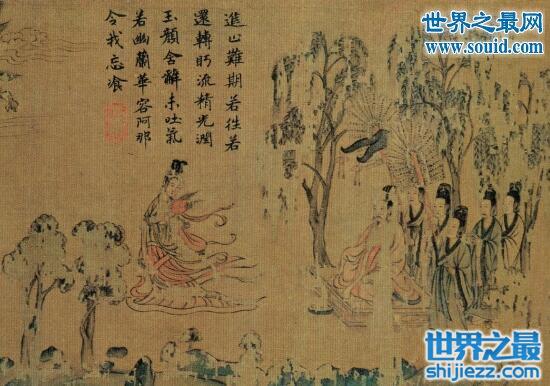 進止難期若往若
還轉眄流精光潤
玉顏含辭未吐氣
若幽蘭華容阿那
令我忘湌
世界之最
www.souid.com
世界之最
shijiezz.com